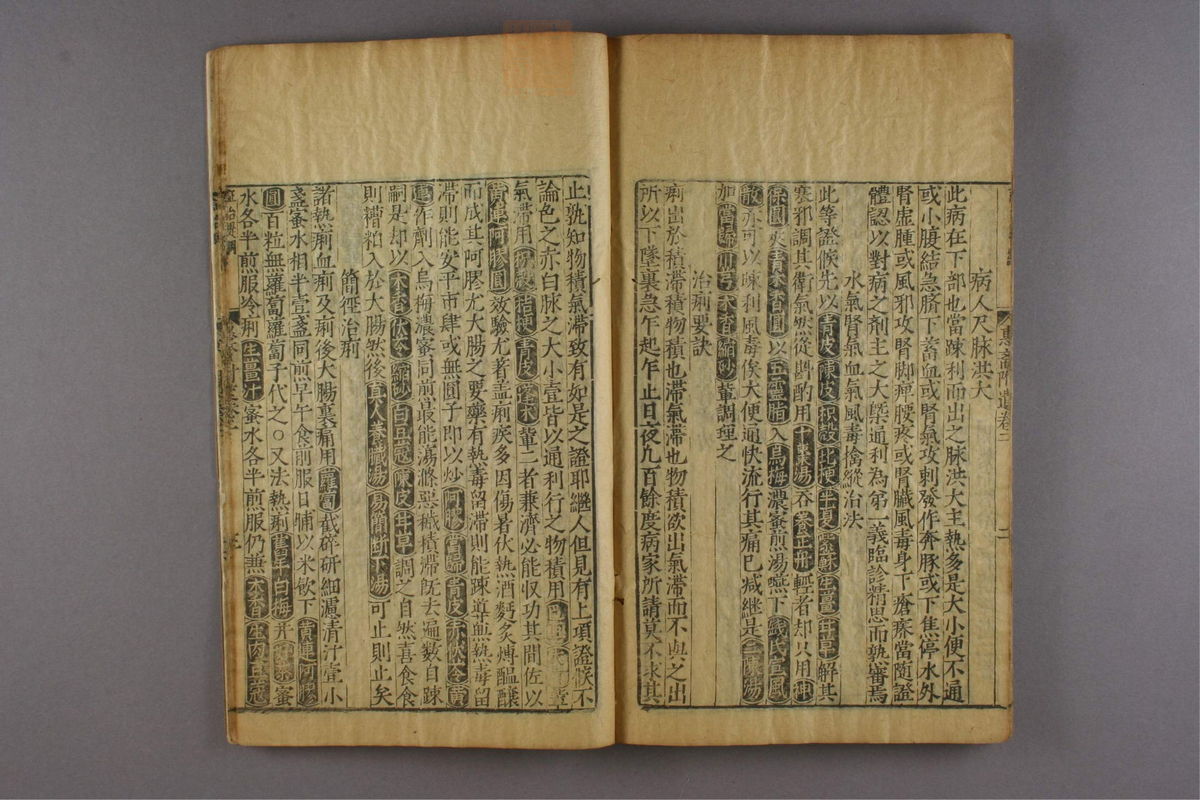 病人尺脉洪大
此病在下部也當踈利而出之脉洪大主熱多是大小便不通
或小腹結急臍下蓄血或腎氣攻刺發作奔豚或下焦停水外
腎虚腫或風邪攻腎脚䏶腰疼或腎臓風毒身下瘡痳當隨證
體認以對病之剤主之大槩通利為第一義臨診精思而熟審焉
水氣腎氣血氣風毒擒縱治法
此等證候先以青皮陳皮枳殻桔梗半夏紫蘇生薑甘草解其
寒邪調其衛氣然從斟酌用十棗湯吞養正丹輕者却只用神
保圓夾青木香圓以五靈脂入烏梅濃蜜煎湯嚥下錢氏宣風
散亦可以踈利風毒俟大便通快流行其痛已减継是二陳湯
加當歸川芎木香縮砂輩調理之
治痢要訣
痢出於積滯積物積也滯氣滯也物積欲出氣滯而不與之出
所以下墜裏急乍起乍止日夜凡百餘度病家所請莫不求其
止孰知物積氣滯致有如是之證耶継人但見有上項證候不
論色之赤白脉之大小壹皆以通利行之物積用
氣滯用枳殻桔梗青皮蓬术輩二者兼濟必能収功其間佐以
黄連阿膠圓效驗尤著盖痢疾多因傷著伏熱酒麪炙煿醞釀
而成其阿膠尤大腸之要藥有熱毒留滯則能踈導無熱毒留
滯則能安平市肆或無圓子即以炒阿膠當歸青皮赤茯苓黄
連作劑入烏梅濃蜜同煎最能蕩滌惡穢積滯既去遍數自踈
嗣是却以木香茯苓縮砂白豆蔲陳皮甘草調之自然喜食食
則糟粕入於大腸然後真人養臓湯易簡断下湯可止則止矣
簡徑治痢
諸熱痢血痢及痢後大腸裏痛用蘿蔔截碎研細濾清汁壹小
盞蜜水相半壹盞同煎早午食前服日晡以米飲下黄連阿膠
圓百粒無蘿蔔蘿蔔子代之○又法熱痢舊年白梅并好茶蜜
水各半煎服冷痢生薑汁蜜水各半煎服仍兼木香生肉豆蔲